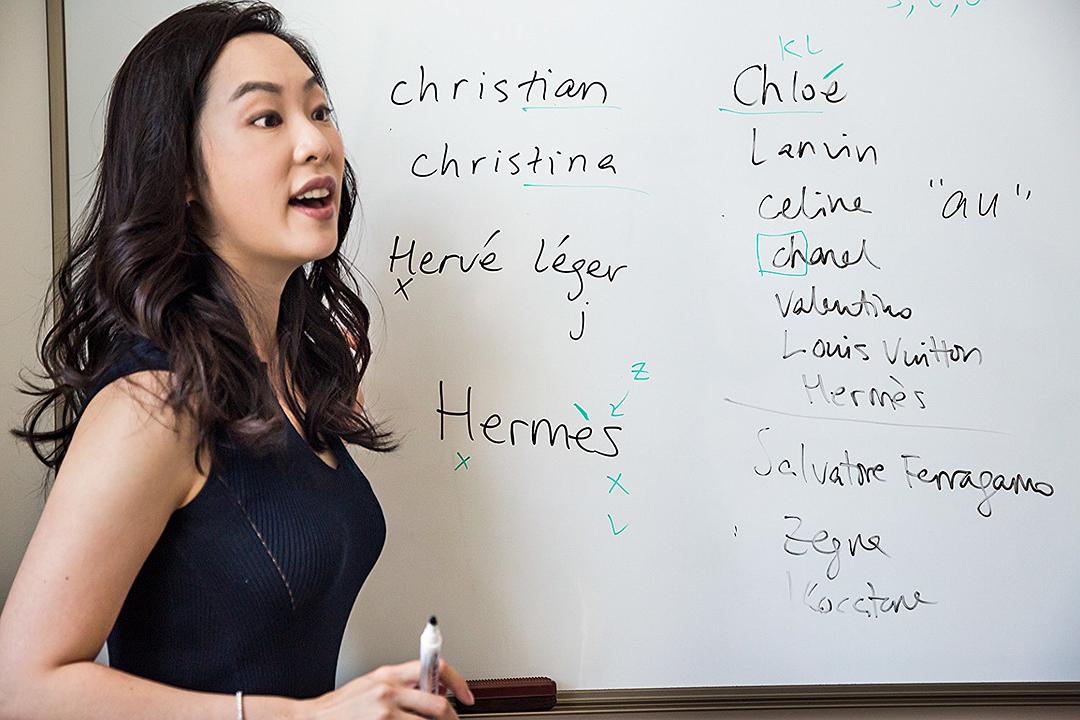 christian
christina
Hervé léger
x
j
z
Hermès
x
x
v
KL
Chloé
Lanvin
celine "au"
chanel
Valentino
Louis Vuitton
Hermès
Salvatore Ferragamo
Zegna